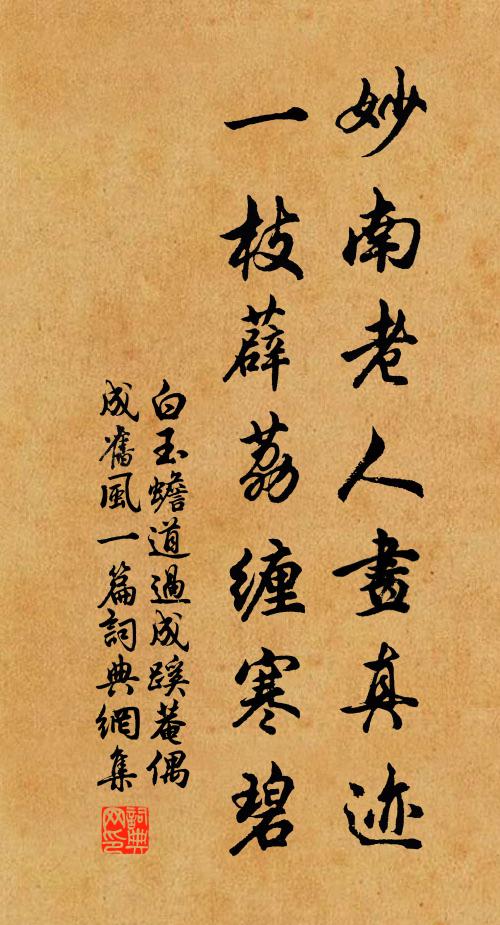 妙南老人畫真迹
一枝薜荔缠寒碧
白玉蟾道過成蹊菴偶
成舊風一篇詞典網集
詞典网印